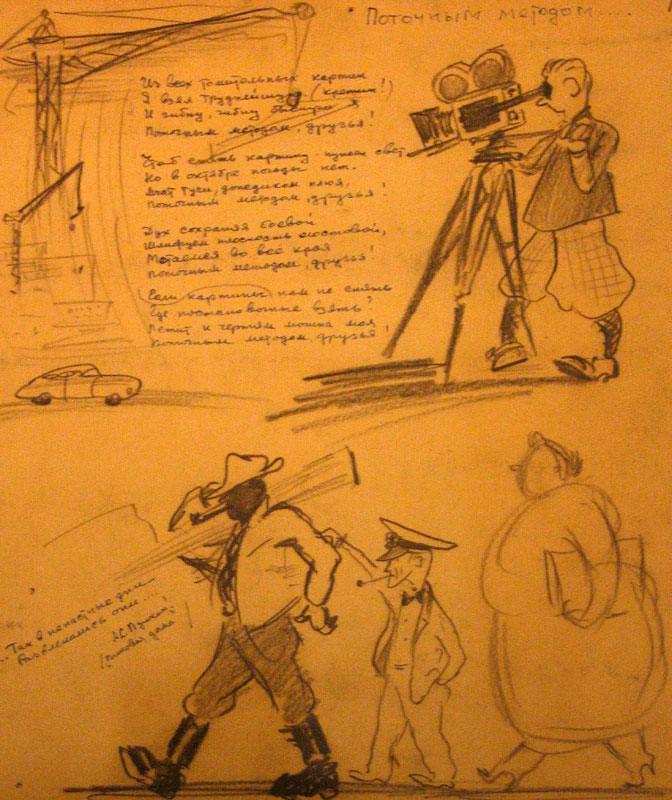 Поточным методом....
Из всех томительных картин
Я взял труднейшую (кретин!)
И гибну, гибну быстро я
Поточным методом, друзья!
Чтоб снять картину нужен свет
Но в октябре погоды нет.
Ждёт Туси, дождиком плюя,
Поточным методом, друзья!
Дух сохраняя боевой
Шлифуем плоскость мостовой,
Мотаемся во все края
Поточным методом, друзья!
Если картины нам не снять
Где постановочные взять?
Летит к чертям мошна моя
Поточным методом, друзья!
...Так в ненастные дни
Развлекались они...
А.С. Пушкин
(Пиковая дама)